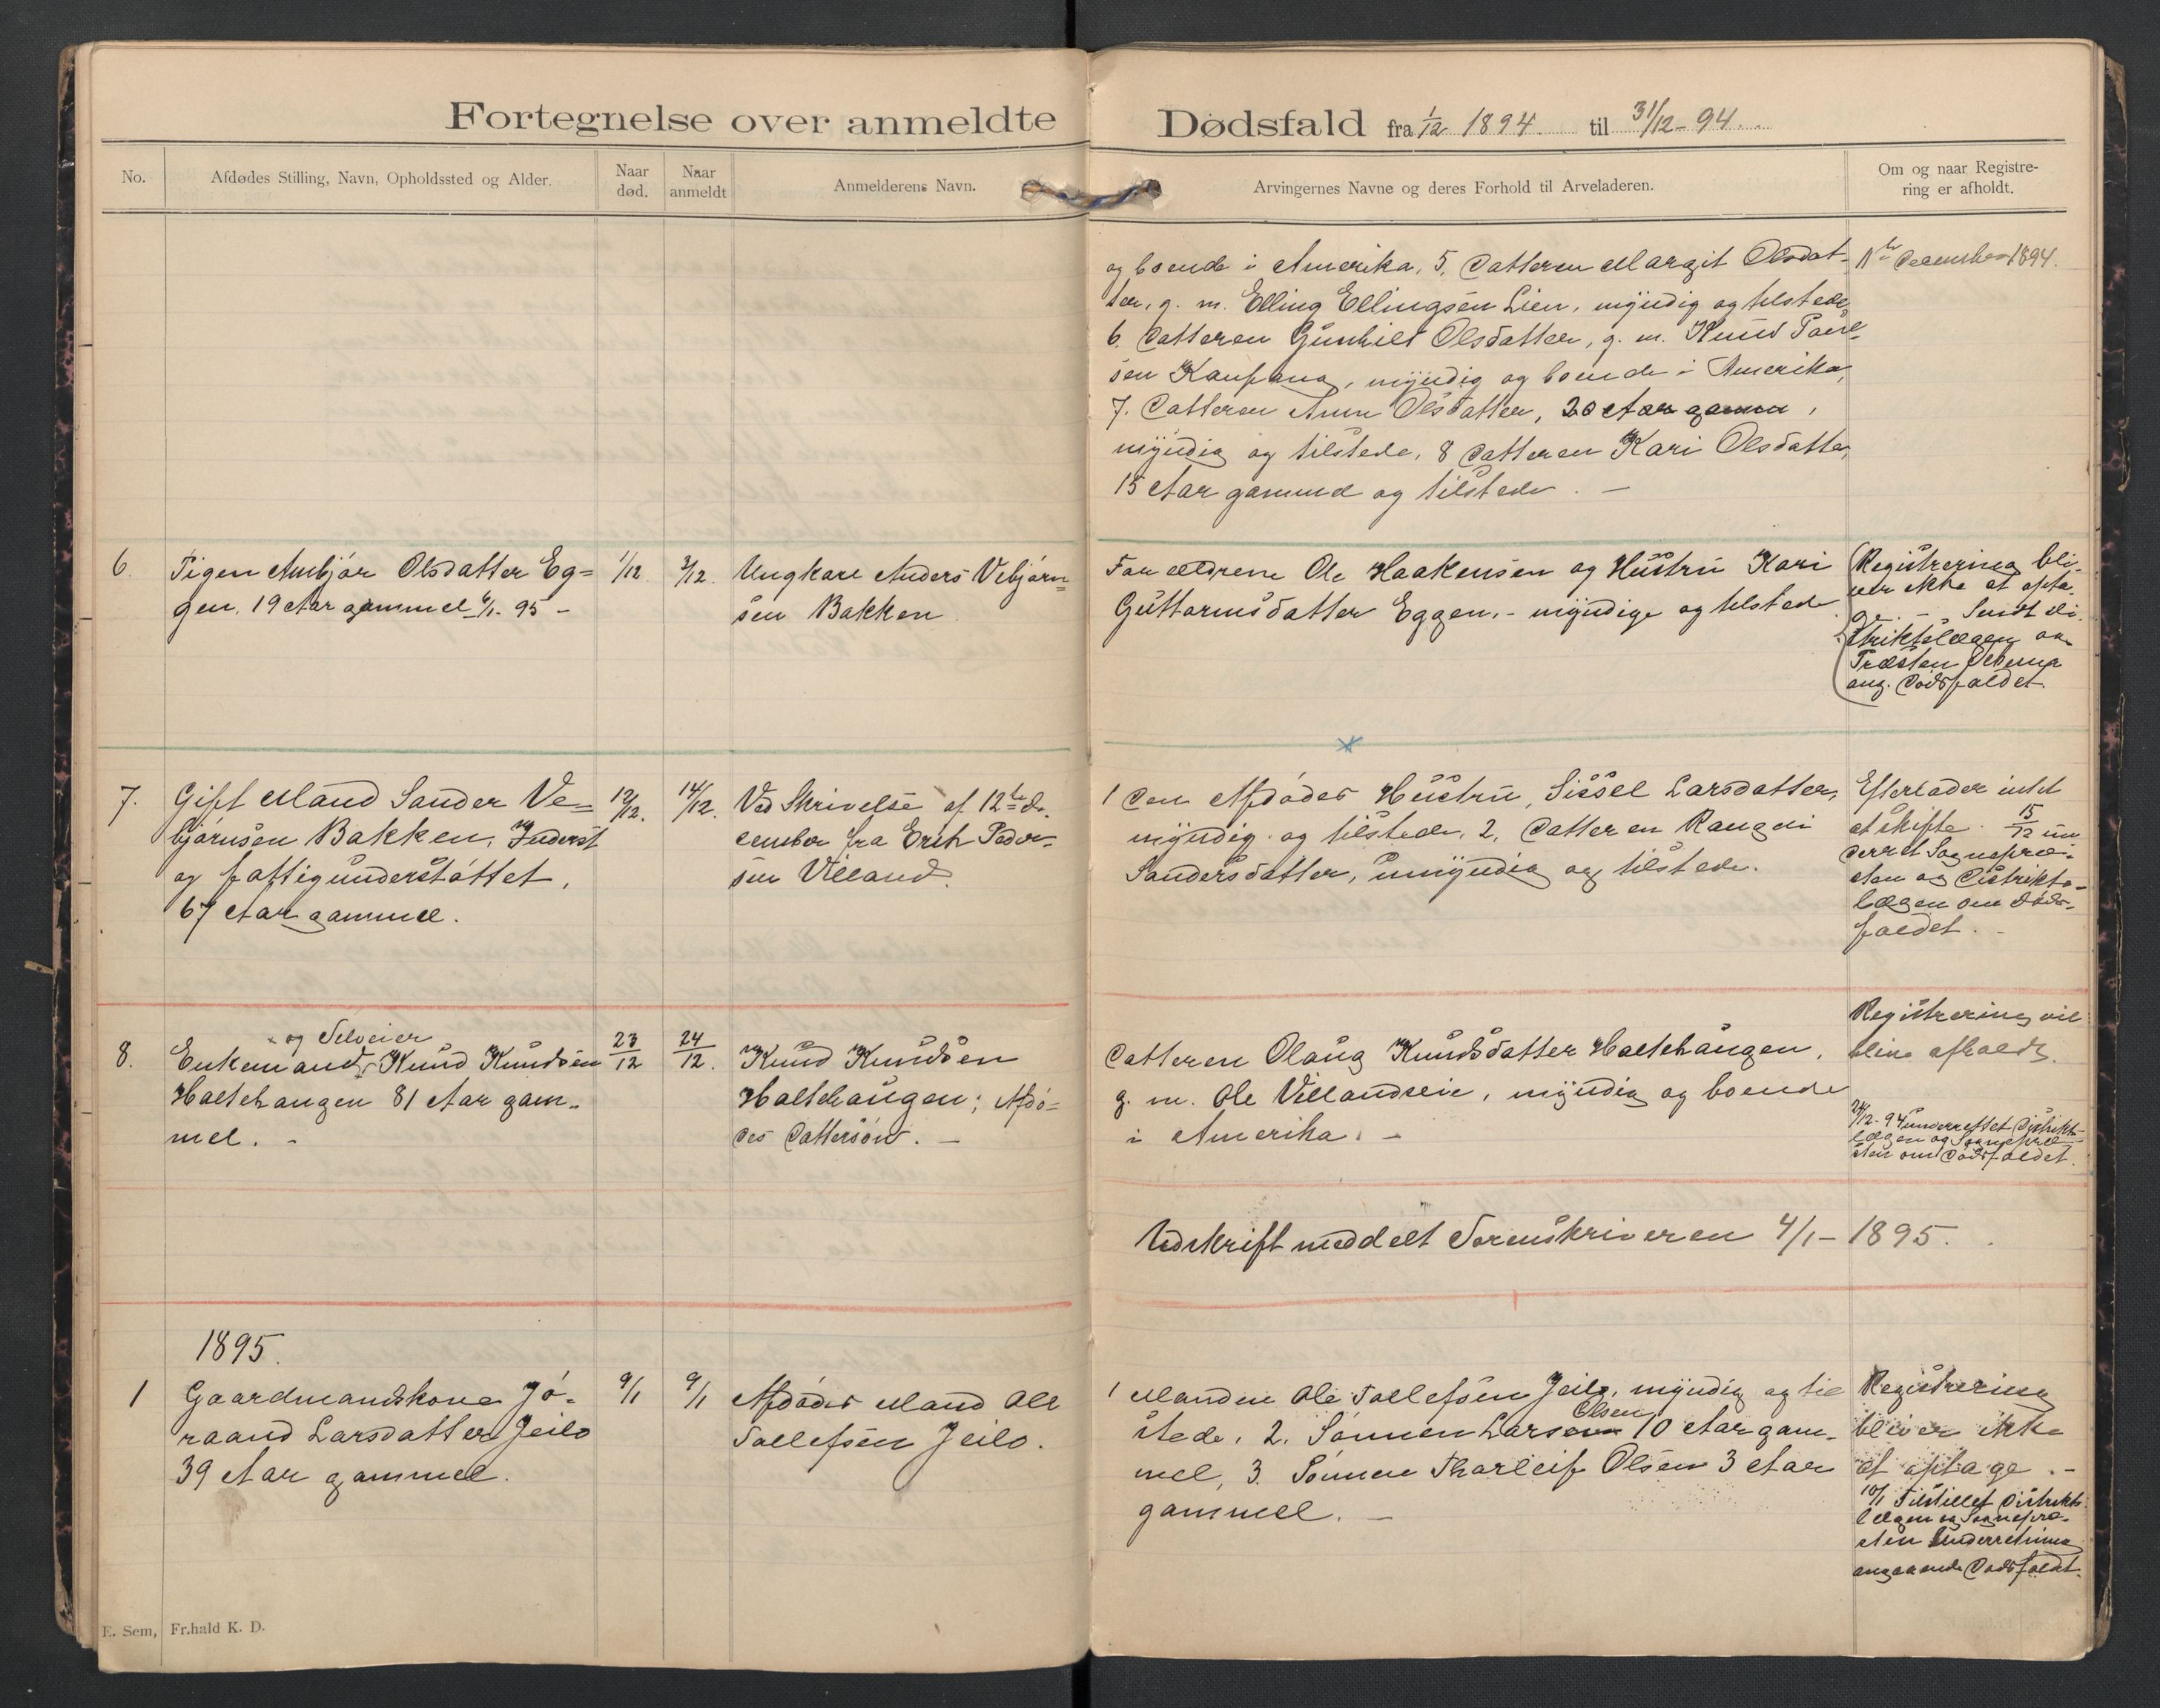 Fortegnelse over anmeldte Dødsfald fra 1/12 1894 til 31/12-94.
No.
Afdødes Stilling, Navn, Opholdssted og Alder.
Naar død.
Naar anmeldt
Anmelderens Navn.
Arvingernes Navne og deres Forhold til Arveladeren.
Om og naar Registre-
ring er afholdt.
og boende i Amerika, 5, Datteren Margit Olsdat-
ter, g. m. Elling Ellingsen Lien, myndig og tilstede
6. Datteren Gunhild Olsdatter, g. m. Knud Paul-
sen Kaupang, myndig og boende i Amerika,
7. Datteren Anne Olsdatter, 20 Aar gammel,
myndig og tilstede, 8 Datteren Kari Olsdatter,
15 Aar gammel og tilstede. -
December 1894.
6.
Pigen Ambjør Olsdatter Eg=
gen, 19 Aar gammel 6/1-95-
1/12.
3/12.
Ungkarl Anders Vebjørn=
sen Bakken
Forældrene Ole Haakensen og Hustru Kari
Guttormsdatter Eggen, - myndige og tilstede
Registrering bli-
ver ikke at opta-
ge. - Sendt Di-
striktslægen og
Præsten
ang. Dødsfaldet.
7.
Gift Mand Sander Ve=
bjørnsen Bakken, Inderst
og fattigunderstøttet,
67 Aar gammel.
12/12.
14/12.
Ved Skrivelse af 12te De-
cember fra Erik Peder-
sen Villand.
1 Den Afdødes Hustru, Sissel Larsdatter,
myndig og tilstede, 2, Datteren Rangdi
Sandersdatter, umyndig og tilstede.
Efterlader intet
at skifte. 15/12 un
derret Sognepræ-
sten og Distrikts-
lægen om Døds-
faldet. -
8.
og Selveier
Enkemand Knud Knudsen
Haltehaugen 81 Aar gam-
mel. -
23/12
24/12.
Knud Knudsen
Haltehaugen; Afdø=
des Dattersøn. -
Datteren Olaug Knudsdatter Haltehaugen,
g. m. Ole Villandseie, myndig og boende
i Amerika. -
Registrering vil
blive afholdt.
24/12-94 underrettet Distrikts-
lægen og Sognepræ-
sten om Dødsfaldet.
Udskrift meddelt Sorenskriveren 4/1-1895.
1895.
1
Gaardmandskone Jø-
raand Larsdatter Jeilo
39 Aar gammel.
9/1
9/1
Afdødes Mand Ole
Tollefsen Jeilo.
1 Manden Ole Tollefsen Jeilo, myndig og til
Olsen
stede, 2. Sønnen Lars 10 Aar gam-
mel, 3. Sønnen Thorleif Olsen 3 Aar
gammel. -
Registrering
bliver ikke
at optage. -
10/1 Tilstillet Distrikts-
lægen og Sognepræ-
sten Underretning
angaaende Dødsfaldet.
E. Sem, Fr.hald K. D.